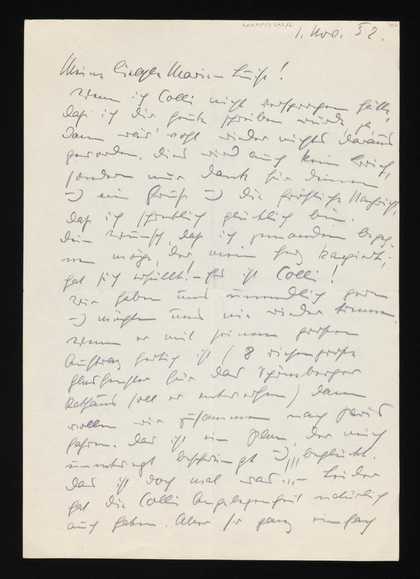 1. Nov. 52.
Meine liebste Marie-Luise!
Wenn ich Colli nicht versprochen hätte,
daß ich dir heute schreiben würde,
dann wär' wohl wieder nichts daraus
geworden. Dies wird auch kein Brief,
sondern nur Dank für deinen
ein Gruß die fröhliche Nachricht,
daß ich glücklich bin.
Dein Wunsch, daß ich jemandem begeg-
nen möge, der mein
hat sich erfüllt! – Es ist Colli!
Wir haben uns unendlich gern
möchten uns nie wieder trennen.
Wenn er mit seinem großen
Auftrag fertig ist (8 riesengroße
Glasfenster für das
Rathaus soll er entwerfen) dann
wollen wir zusammen nach Paris
fahren. Das ist ein Plan, der mich
unbedingt beschwingt beglückt.
Das ist doch mal was. – Leider
hat die Colli Angelegenheit natürlich
auch Haken. Aber so ganz einfach